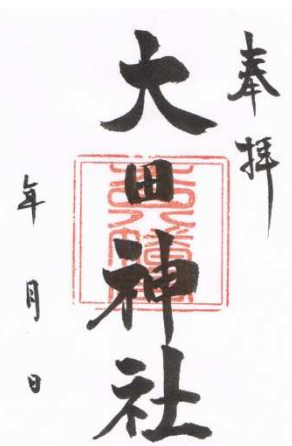 奉拝
大田神社
年 月 日